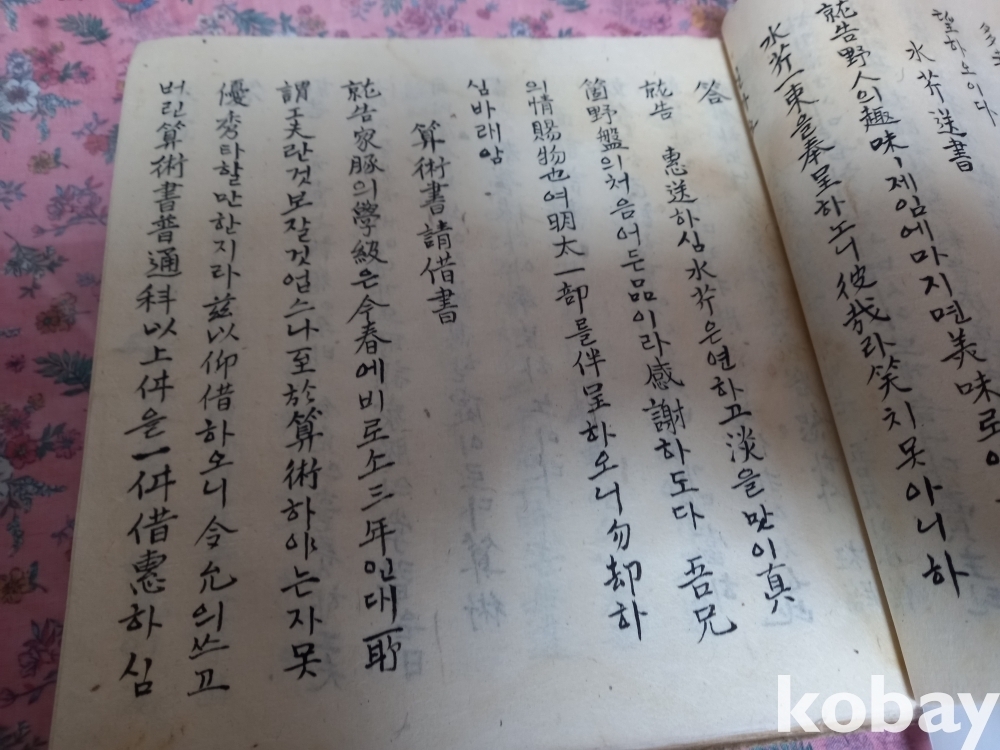 하오이다
水芥送書
就告野人의趣味、제임에마지면美味로
水芥一束을奉呈하노니彼哉라笑치못아니하
答
就告 惠送하심水芥은연하고淡을맛이真
箇野盤의처음어든品이라感謝하도다 吾兄
의情賜物也여明太一部를伴呈하오니勿却하
심바래암
算術書請借書
就告家豚의學級은今春에비로소三年인대耶
謂工夫란것은잘것업스나至於算術하야는자못
優秀타할만한지라玆以仰借하오니令允의쓰고
버린算術書普通科以上件을一件借惠하심
kobay